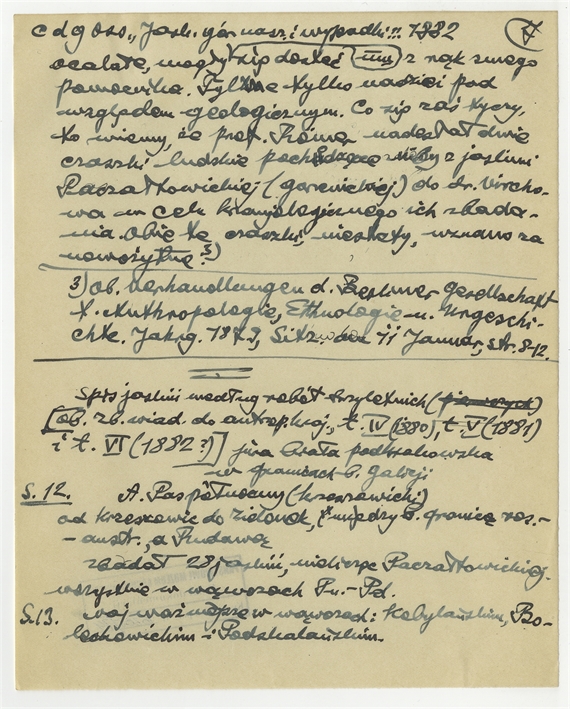 c d g Oss., Jask. gór nasz. i wypadki!! 1882 7
ocalałe, mogły się dostać z rąk swego
pomocnika. Tyle tylko nadziei pod
względem geologicznym. Co się zaś tyczy,
to wiemy, że prof. Römer nadesłał dwie
czaszki ludzkie pochodzące niby z jaskini
Paczałtowickiej (gorenickiej) do dr. Vircho-
wa w celu kranjologicznego ich zbada-
nia. Obie te czaszki, niestety, uznano za
nowożytne. 3)
3) Ob. Verhandlungen d. Berliner Gesellschaft
f. Anthropologie, Ethnologie u. Urgeschi-
chte. Jahrg. 1879, Sitz. 11 Januar, str. 8-12.
Spis jaskiń według robót trzyletnich
[ob. zb. wiad. do antropoloj., t. IV (1880), t. V (1881)
i t. VI (1882?)] jura biała podkrakowska
w granicach b. Galicji
S. 12. A. Pas północny (krzeszowicki)
od Krzeszowic do Zielonek, między b. granicą ros.-
-austr., a Rudawą
zbadał 28 jaskiń, nielicząc Paczałtowickiej.
wszystkie w wąwozach Pn.-Pd.
S. 13. najważniejsze w wąwozach: Kobylańskim, Bo-
lechowickim i Podskalańskim.